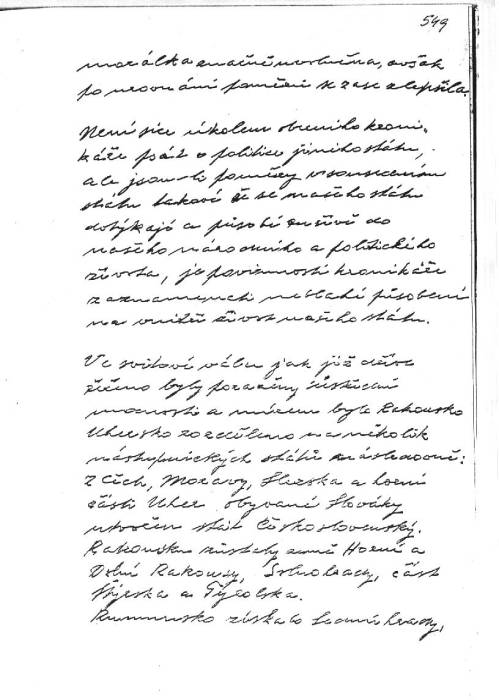 549
morálka značně uvolněna, avšak
po urovnání poměrů se zase zlepšila.
Není sice úkolem obecního kroni-
káře psát o politice jiného státu,
ale jsou-li poměry v sousedním
státu takové že se našeho státu
dotýkají a působí rušivě do
našeho národního a politického
života, je povinností kronikáře
zaznamenati neblahé působení
na vnitřní život našeho státu.
Ve světové válce jak již dříve
řečeno byly poraženy ústřední
mocnosti a mírem bylo Rakousko
Uhersko rozděleno na několik
nástupnických států následovně:
Z Čech, Moravy, Slezska a horní
části Uher obývané Slováky
utvořen stát Československý.
Rakousku zůstaly země Horní a
Dolní Rakousy, Solnohrady, část
Štýrska a Tyrolska.
Rumunsko získalo Sedmihrady,